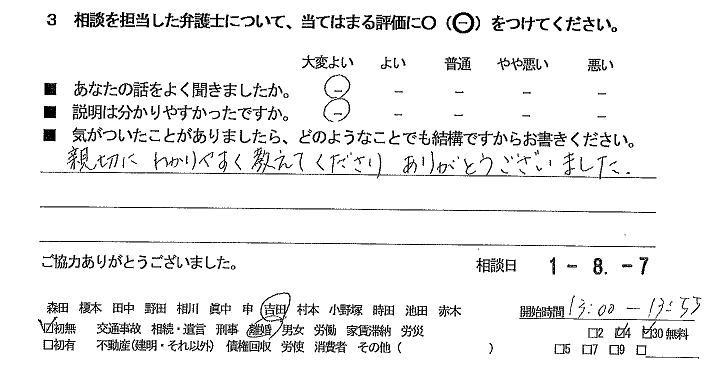 3 相談を担当した弁護士について、当てはまる評価に〇(⊖)をつけてください。
大変よい よい 普通 やや悪い 悪い
■ あなたの話をよく聞きましたか。 − − − − −
■ 説明は分かりやすかったですか。 − − − − −
■ 気がついたことがありましたら、どのようなことでも結構ですからお書きください。
親切に わかりやすく教えてくださり ありがとうございました.
ご協力ありがとうございました。 相談日 1-8.-7
森田 榎本 田中 野田 相川 眞中 申 吉田 村本 小野塚 時田 池田 赤木 開始時間 13:00 — 13:55
☑初無 交通事故 相続・遺言 刑事 離婚 男女 労働 家賃滞納 労災 □2 ☑4 ☑30無料
□初有 不動産(建明・それ以外) 債権回収 労使 消費者 その他( ) □5 □7 □9 □